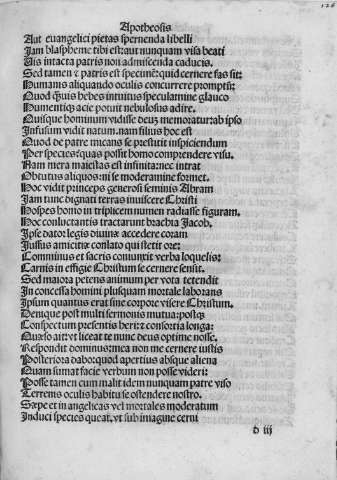 126
Apotheosis
Aut euangelici pietas spernenda libelli
Iam blaspheme tibi est: aut nunquam visa beati
Vis intacta patris non admiscenda caducis.
Sed tamen & patris est specimen qd cernere fas sit:
Humanis aliquando oculis concurrere promptũ:
Quod quis hebes intuitus speculamine glauco
Humentiqz acie potuit nebulosus adire.
Quisque hominum vidisse deuz memoratur: ab ipso
Infusum vidit natum. nam filius hoc est
Quod de patre micans se prestitit inspiciendum
Per species: quas possit homo comprendere visu.
Nam mera maiestas est infinita: nec intrat
Obtutus aliquos: ni se moderamine formet.
Hoc vidit princeps generosi seminis Abram
Iam tunc dignati terras inuisere Christi
Hospes homo in triplicem numen radiasse figuram.
Hoc conluctantis tractarunt brachia Jacob.
Ipse dator legis diuinæ accedere coram
Iussus amicitiæ conlato qui stetit ore:
Comminus et sacris coniunxit verba loquelis:
Carnis in effigie Christum se cernere sensit.
Sed maiora petens animum per vota tetendit
In concessa homini plusquam mortale laborans
Ipsum quantus erat sine corpore visere Christum.
Denique post multi sermonis mutua: postqz
Conspectum presentis heri: & consortia longa:
Quæso ait: vt liceat te nunc deus optime nosse.
Respondit dominus: mea non me cernere iustis
Posteriora dabor. quod apertius absque aliena
Quam sumat facie verbum non posse videri:
Posse tamen cum malit idem nunquam patre viso
Terrenis oculis habitu se ostendere nostro.
Sæpe et in angelicas vel mortales moderatum
Induci species queat. vt sub imagine cerni
d iii